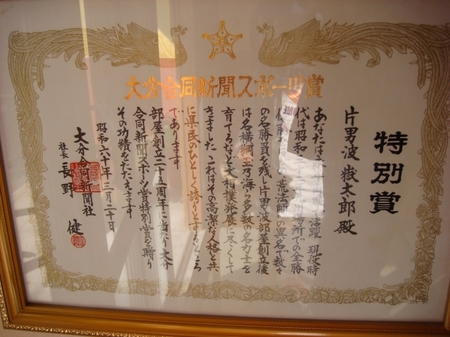 大分合同新聞スポーツ賞
特別賞
片男波 嶽太郎 殿
あなたは 活躍 現役時
代は昭和 場所での全勝
荒法師の異名で数多
の名勝負を残し片男波部屋創立後
は名横綱玉乃海ら多数の名力士を
育てるなど大相撲発展に尽くして
きました これはその高潔な人格と共
に県民のひとしく誇りとするところ
であります
部屋創立二十五周年に当り大分
合同新聞スポーツ賞特別賞を贈り
その功績をたたえます
昭和六十年三月二十日
大分合同新聞社
社長 長野 健